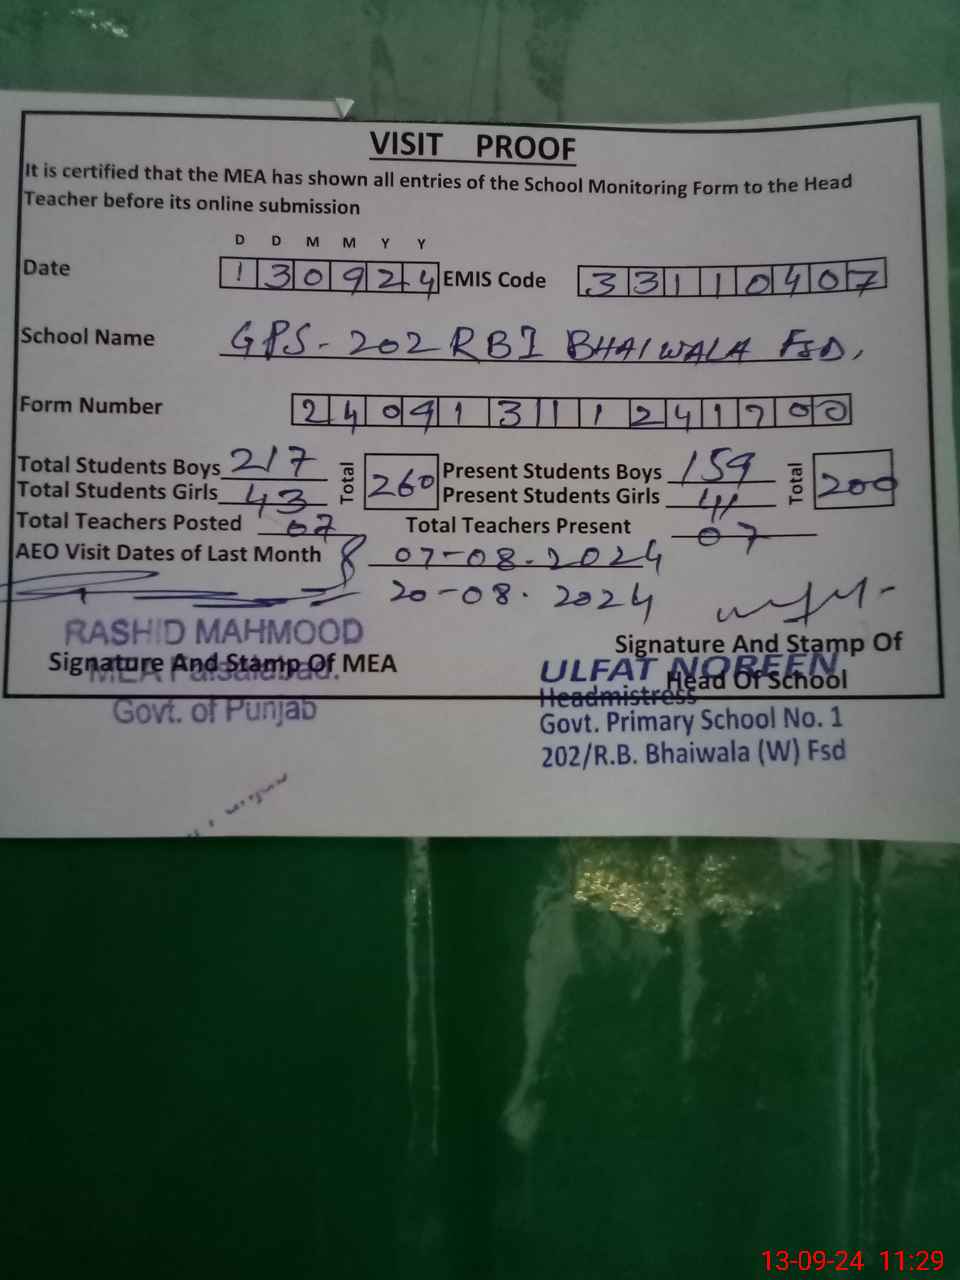 VISIT PROOF
It is certified that the MEA has shown all entries of the School Monitoring Form to the Head
Teacher before its online submission
D D M M Y Y
Date 130924 EMIS Code 33110407
School Name GPS-202 RB I BHAIWALA FSD,
Form Number 240913111241700
Total Students Boys 217 Total 260 Present Students Boys 159 Total 200
Total Students Girls 43 Present Students Girls 41
Total Teachers Posted 07 Total Teachers Present 07
AEO Visit Dates of Last Month 07-08.2024
20-08.2024
RASHID MAHMOOD
Signature And Stamp Of MEA
MEA Faisalabad.
Govt. of Punjab
Signature And Stamp Of
Head Of School
ULFAT NOREEN
Headmistress
Govt. Primary School No. 1
202/R.B. Bhaiwala (W) Fsd
13-09-24 11:29